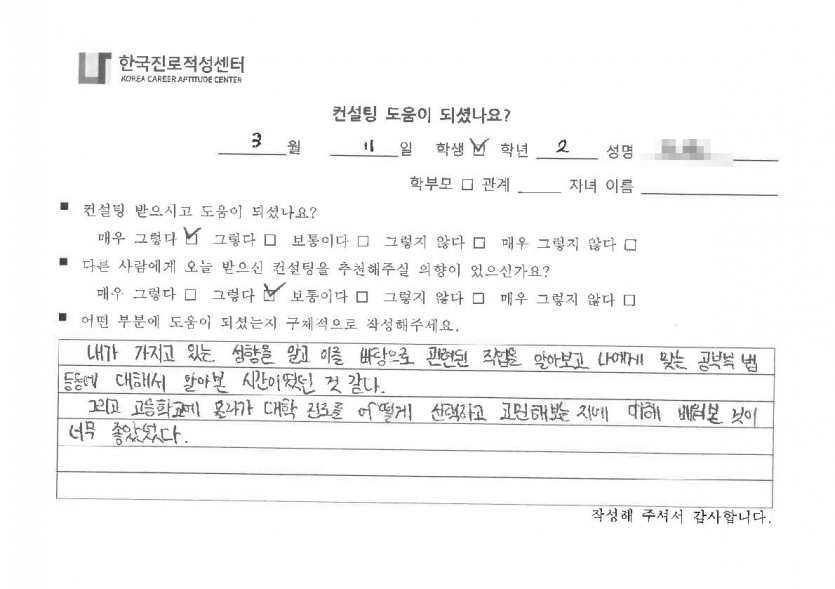 한국진로적성센터
KOREA CAREER APTITUDE CENTER
컨설팅 도움이 되셨나요?
3 월 11 일 학생 ☑ 학년 2 성명
학부모 □ 관계 자녀 이름
■ 컨설팅 받으시고 도움이 되셨나요?
매우 그렇다 ☑ 그렇다 □ 보통이다 □ 그렇지 않다 □ 매우 그렇지 않다 □
■ 다른 사람에게 오늘 받으신 컨설팅을 추천해주실 의향이 있으신가요?
매우 그렇다 □ 그렇다 ☑ 보통이다 □ 그렇지 않다 □ 매우 그렇지 않다 □
■ 어떤 부분에 도움이 되셨는지 구체적으로 작성해주세요.
내가 가지고 있는 성향을 알고 이를 바탕으로 관련된 직업을 알아보고 나에게 맞는 공부 법
등등에 대해서 알아본 시간이었던 것 같다.
그리고 고등학교에 올라가 대학 진로를 어떻게 선택하고 고민해보는지에 대해 배워본 것이
너무 좋았었다.
작성해 주셔서 감사합니다.